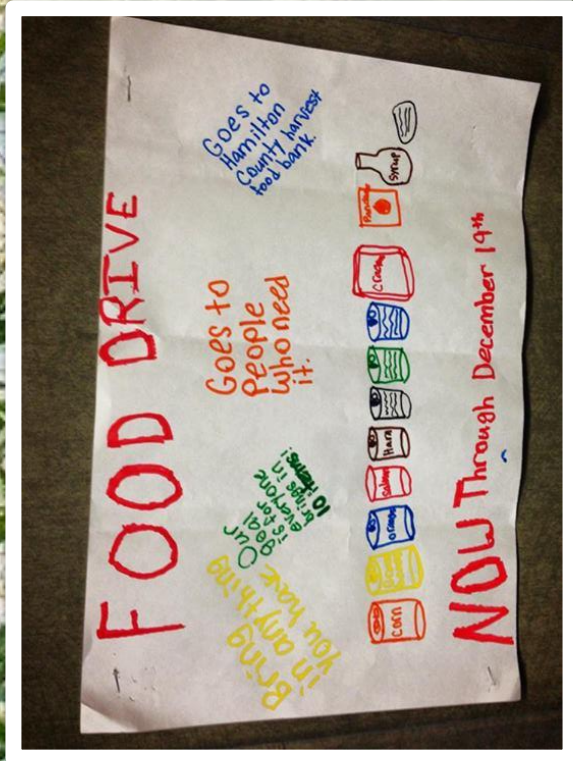 FOOD DRIVE
Bring
in anything
you have
Our
goal
is for
everyone
brings in
10 items!
Goes to
People
who need
it.
Goes to
Hamilton
County harvest
food bank.
Corn
Ham
Syrup
NOW Through December 19th